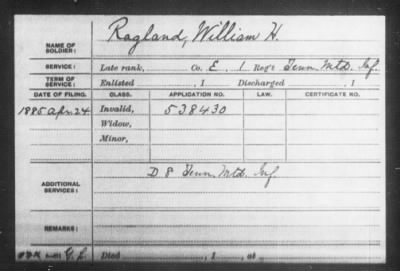 NAME OF SOLDIER: Ragland, William H.
SERVICE: Late rank, Co. E, 1 Reg't Tenn. Mtd. Inf.
TERM OF SERVICE: Enlisted , 1 Discharged , 1
DATE OF FILING. CLASS. APPLICATION NO. LAW. CERTIFICATE NO.
1885 Apr. 24 Invalid, 538430
Widow,
Minor,
ADDITIONAL SERVICES: D 8 Tenn. Mtd. Inf.
REMARKS:
Died , 1 , at